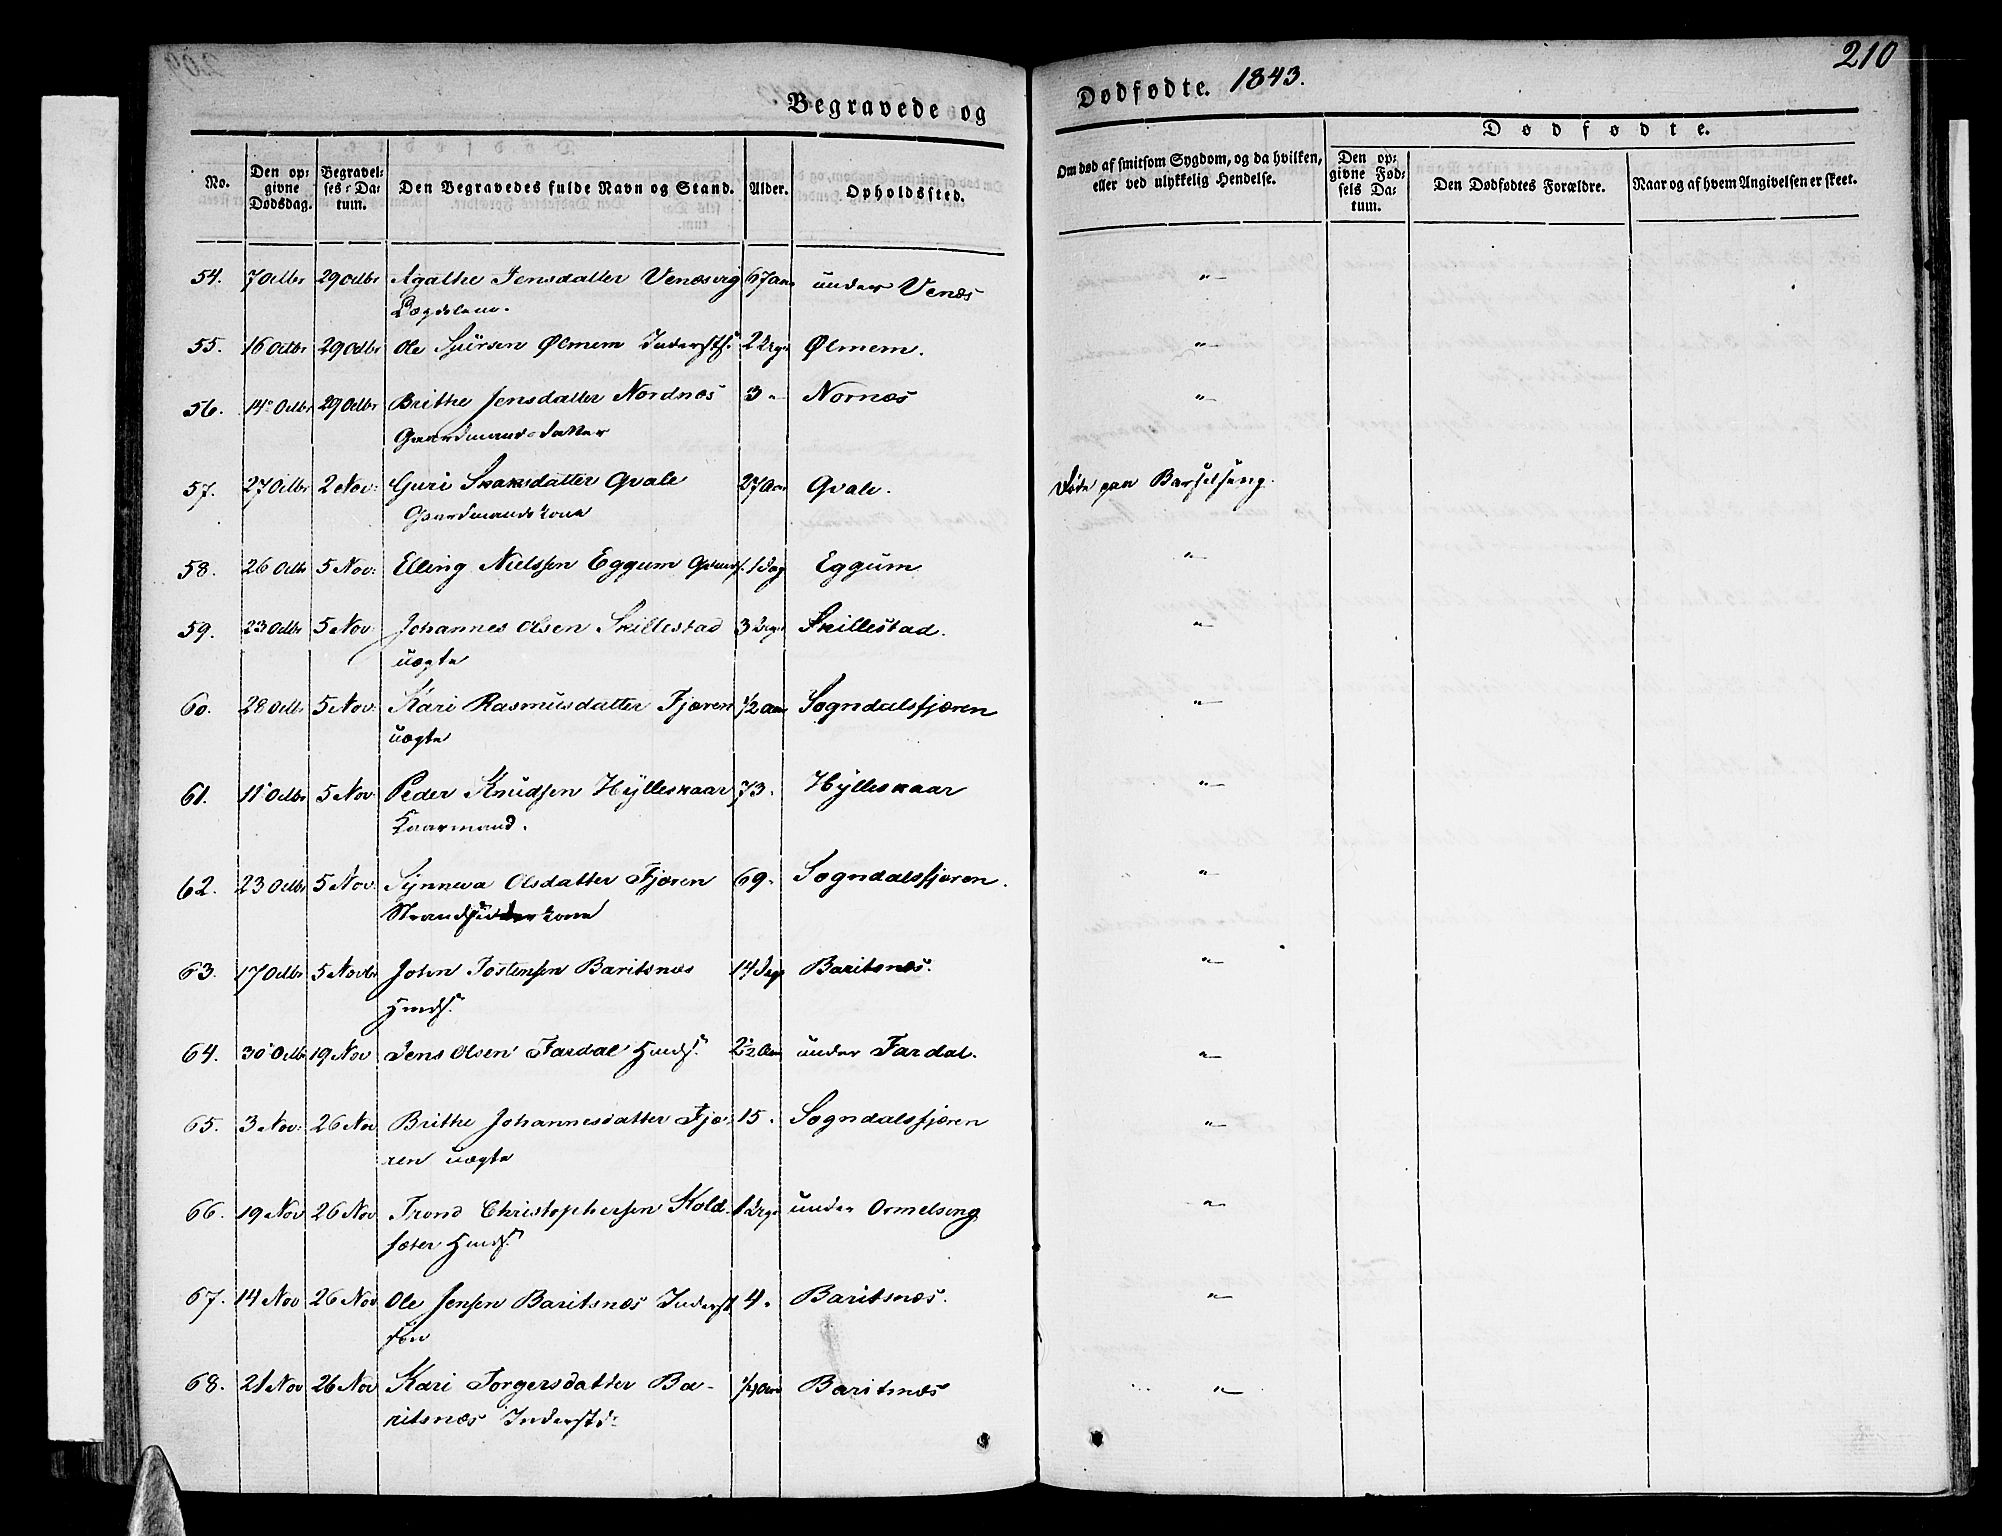 210
Begravede og Dødfødte. 1843.
No. Den opgivne Dødsdag. Begravelses-Datum. Den Begravedes fulde Navn og Stand. Alder. Opholdssted. Om død af smitsom Sygdom, og da hvilken, eller ved ulykkelig Hendelse. Dødfødte. Den opgivne Fødsels Datum. Den Dødfødtes Forældre. Naar og af hvem Angivelsen er skeet.
54. 7 Octbr 29 Octbr Agathe Jensdatter Venæsvig 67 Aar under Venæs "
Lægdslem.
55. 16 Octbr 29 Octbr Ole Sjursen Ølmem Indersts. 2 Dage Ølmem. "
56. 14 Octbr 29 Octbr Brithe Jensdatter Nordnæs 3 " Nornæs "
Gaardmandsdatter
57. 27 Octbr 2 Nov: Guri Skaksdatter Qvale 27 Aar Qvale. Døde paa Barselseng.
Gaardmandskone
58. 26 Octb 5 Nov: Elling Nielssen Eggum Gaards. 1 Dag Eggum "
59. 23 Octb 5 Nov: Johannes Olsen Skillestad 3 Dage Skillestad. "
uægte
60. 28 Octb. 5 Nov: Kari Rasmusdatter Fjæren 1/2 Aar Sogndalsfjæren "
uægte
61. 11 Octbr 5 Nov: Peder Knudsen Hÿlleskaar 73. Hÿlleskaar "
Kaarmand.
62. 23 Octbr 5 Nov. Synneva Olsdatter Fjæren 69. Sogndalsfjæren. "
Strandsidderkone
63. 17 Octbr 5 Novbr John Jostensen Baritsnæs 14 Dage Baritsnæs. "
Hmds.
64. 30 Octb 19 Nov Jens Olsen Fardal Hmds. 2 1/2 Aar under Fardal. "
65. 3 Nov: 26 Nov Brithe Johannesdatter Fjæ- 15. Sogndalsfjæren "
ren uægte
66. 19 Nov 26 Nov Trond Christophersen Kold- 1 Dage under Ormelseng "
sæter Hmds.
67. 14 Nov 26 Nov Ole Jensen Baritsnæs Inderst 4. Baritsnæs. "
søn
68. 21 Nov 26 Nov Kari Torgersdatter Ba- 1/4 Aar Baritsnæs "
ritsnæs Inderstd: